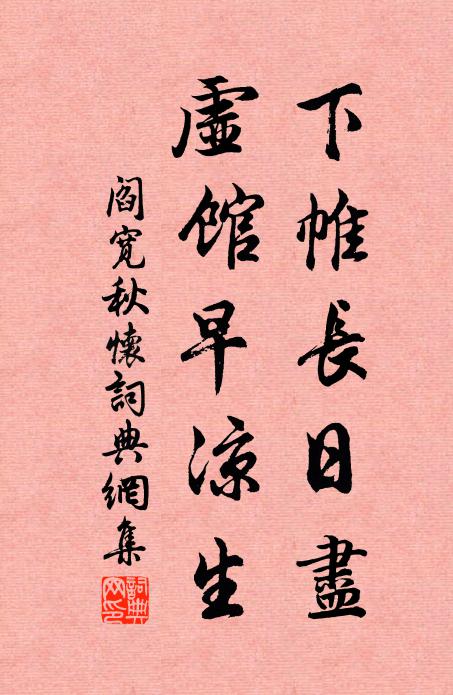 下帷長日盡
虛館早凉生
閻寬秋懷詞典網集
詞典網印